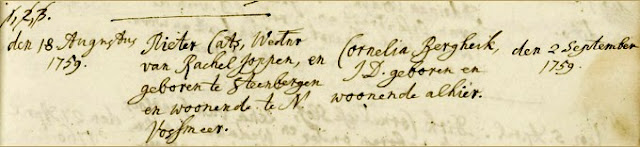 1, 2, 3.
den 18 Augustus Pieter Cats, Wednr Cornelia Bergheik, den 2 September
1759. van Rachel Joppen, en J.D. geboren en 1759.
geboren te Steenbergen woonende alhier.
en woonende te N
Vossmeer.